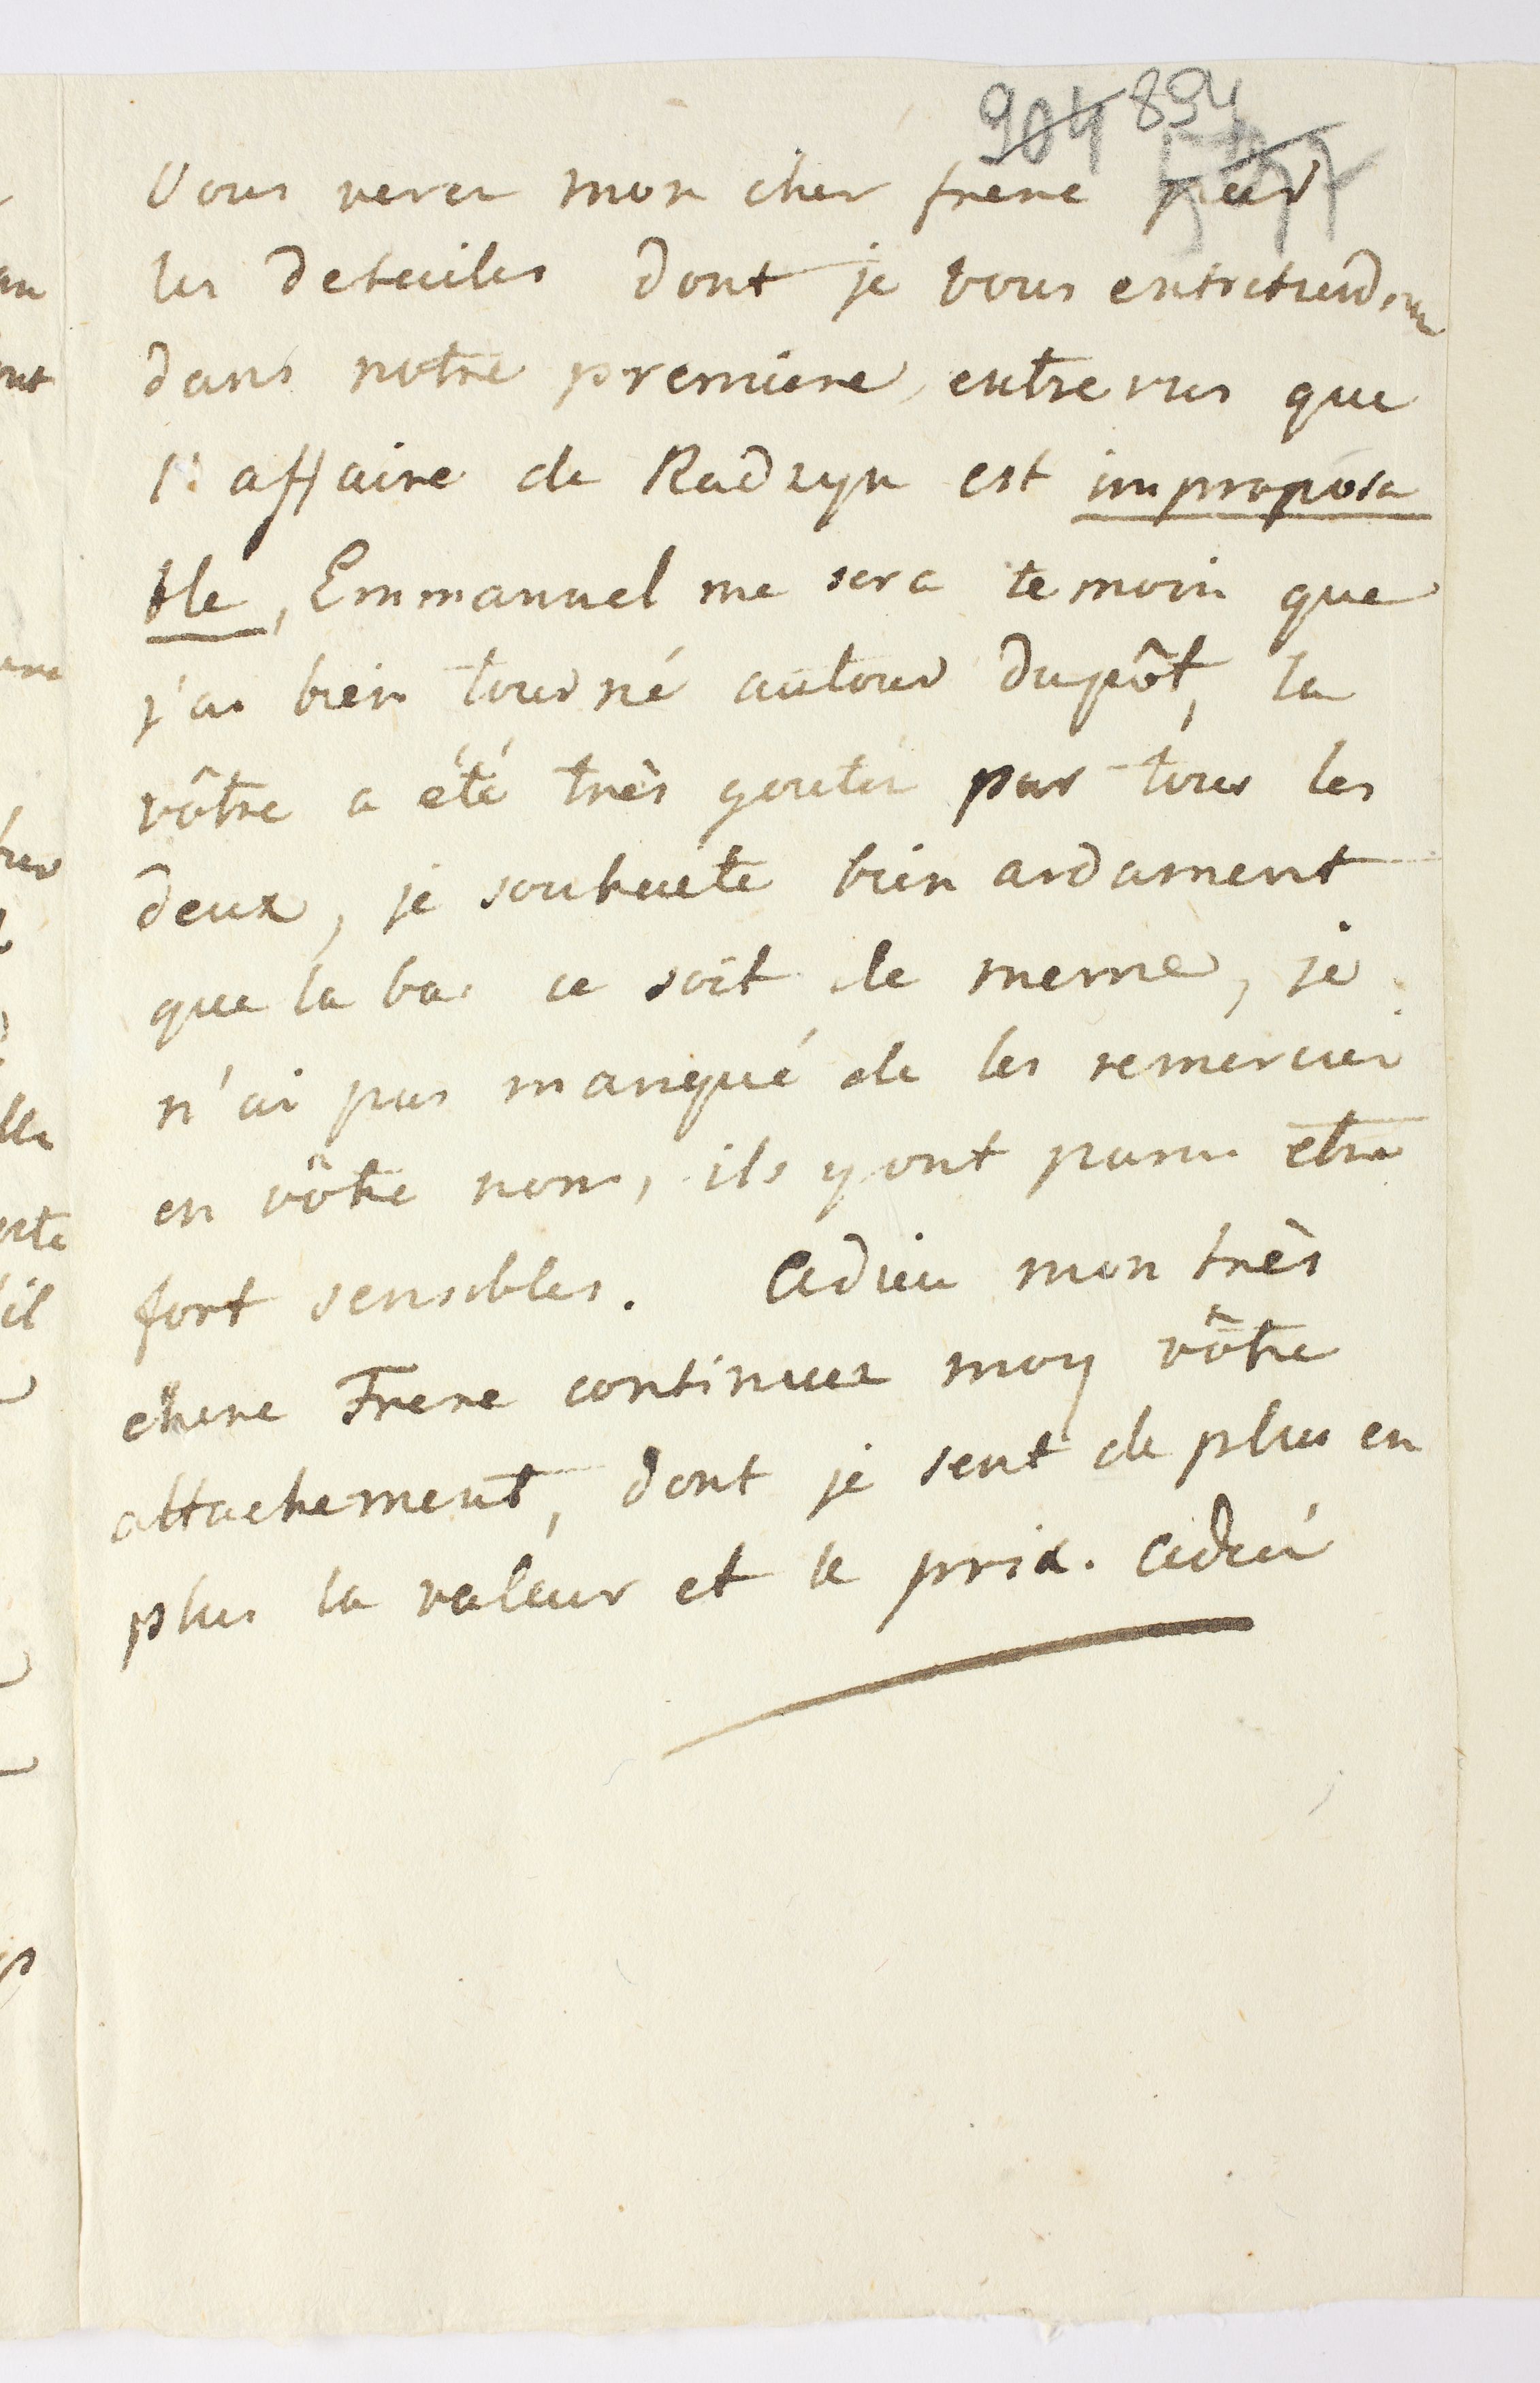 904 894
Vous verez mon cher frere par
les detailes dont je vous entretiendrai
dans notre premiere entrevus que
l'affaire de Radzyn est improposa
ble, Emmanuel me sera temoin que
j'ai bien tourné autour dupôt, la
vôtre a été très goutés par tous les
deux, je souhaite bien ardament
que la bas ce soit de meme, je
n'ai pas manqué de les remercier
en vôtre nom, ils y ont parru etre
fort sensibles. Adieu mon très
chere Frere continuez moy vôtre
attachement, dont je sent de plus en
plus la valeur et le prix. adieu